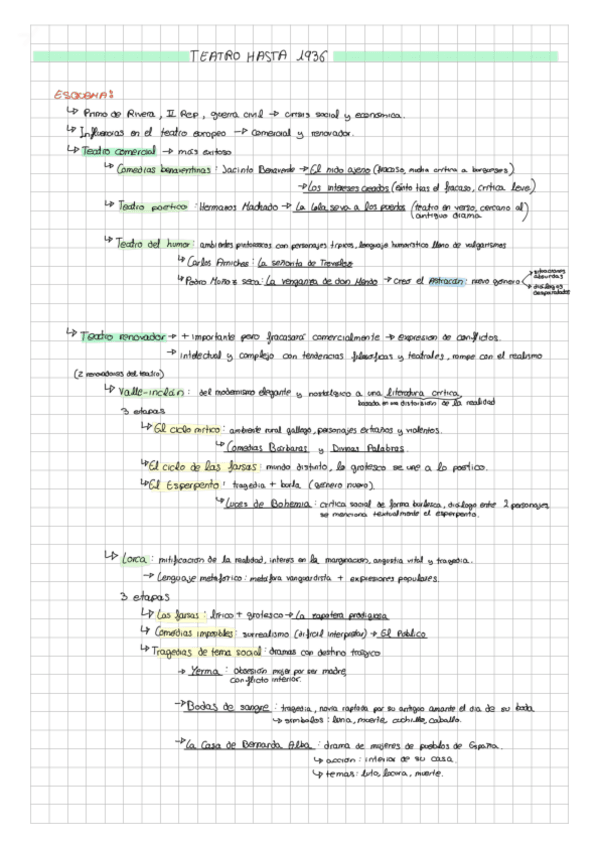 TEATRO HASTA 1936
ESQUEMA:
↳ Primo de Rivera, II Rep, guerra civil → crisis social y económica.
↳ Influencias en el teatro europeo → comercial y renovador.
↳ Teatro comercial → más exitoso
↳ Comedias benaventinas: Jacinto Benavente → El nido ajeno (fracaso, mucha crítica a burgueses)
→ Los intereses creados (éxito tras el fracaso, crítica leve)
↳ Teatro poético: Hermanos Machado → La Lola se va a los puertos (teatro en verso, cercano al
antiguo drama)
↳ Teatro del humor: ambientes pintorescos con personajes típicos, lenguaje humorístico lleno de vulgarismos
↳ Carlos Arniches: La señorita de Trevélez
↳ Pedro Muñoz Seca: La venganza de don Mendo → Creó el Astracán: nuevo género
situaciones absurdas
diálogos disparatados
↳ Teatro renovador → + importante pero fracasará comercialmente → expresión de conflictos.
→ intelectual y complejo con tendencias filosóficas y teatrales, rompe con el realismo
(2 renovadores del teatro)
↳ Valle-inclán: del modernismo elegante y nostálgico a una literatura crítica,
basada en una distorsión de la realidad
3 etapas
↳ El ciclo mítico: ambiente rural gallego, personajes extraños y violentos.
↳ Comedias Bárbaras y Divinas Palabras.
↳ El ciclo de las farsas: mundo distinto, lo grotesco se une a lo poético.
↳ El Esperpento: tragedia + burla (género nuevo)
↳ Luces de Bohemia: crítica social de forma burlesca, diálogo entre 2 personajes,
se menciona textualmente el esperpento.
↳ Lorca: mitificación de la realidad, interés en la marginación, angustia vital y tragedia.
→ Lenguaje metafórico: metáfora vanguardista + expresiones populares.
3 etapas
↳ Las farsas: lírico + grotesco → La zapatera prodigiosa
↳ Comedias imposibles: surrealismo (difícil interpretar) → El Público
↳ Tragedias de tema social: dramas con destino trágico
→ Yerma: obsesión mujer por ser madre,
conflicto interior.
→ Bodas de sangre: tragedia, novia raptada por su antiguo amante el día de su boda
↳ símbolos: luna, muerte, cuchillo, caballo.
→ La Casa de Bernarda Alba: drama de mujeres de pueblos de España.
↳ acción: interior de su casa.
↳ temas: luto, locura, muerte.